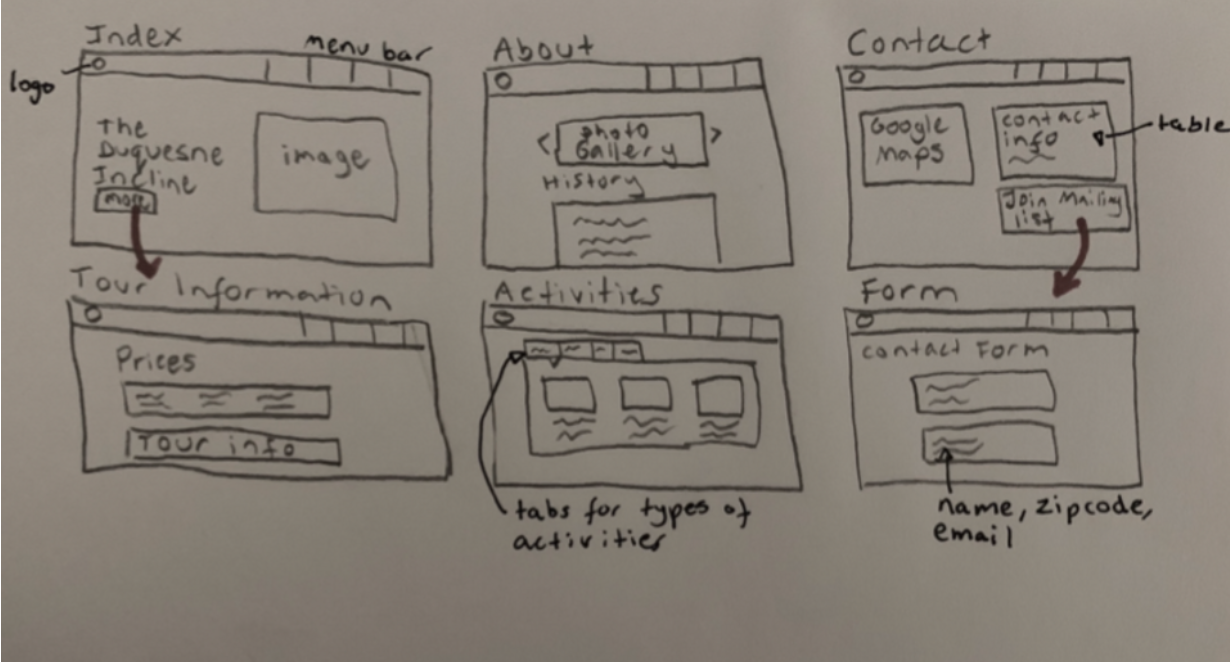 Index
menu bar
logo
The
Duquesne
Incline
more
image
About
< photo >
Gallery
History
Contact
Google
Maps
contact
info
table
Join Mailing
list
Tour Information
Prices
Tour info
Activities
tabs for types of
activities
Form
contact Form
name, zipcode,
email